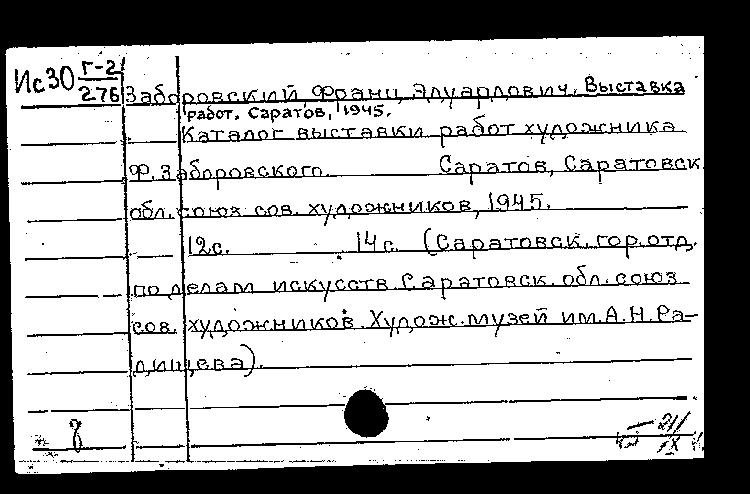 Ис30 Г-2/276 Заборовский Франц Эдуардович. Выставка
работ. Саратов, 1945.
Каталог выставки работ художника
Ф. Заборовского Саратов, Саратовск.
обл. союз сов. художников, 1945.
12с. 14с. (Саратовск. гор. отд.
по делам искусств. Саратовск. обл. союз
сов. художников. Худож. музей им. А. Н. Ра-
дищева).
8